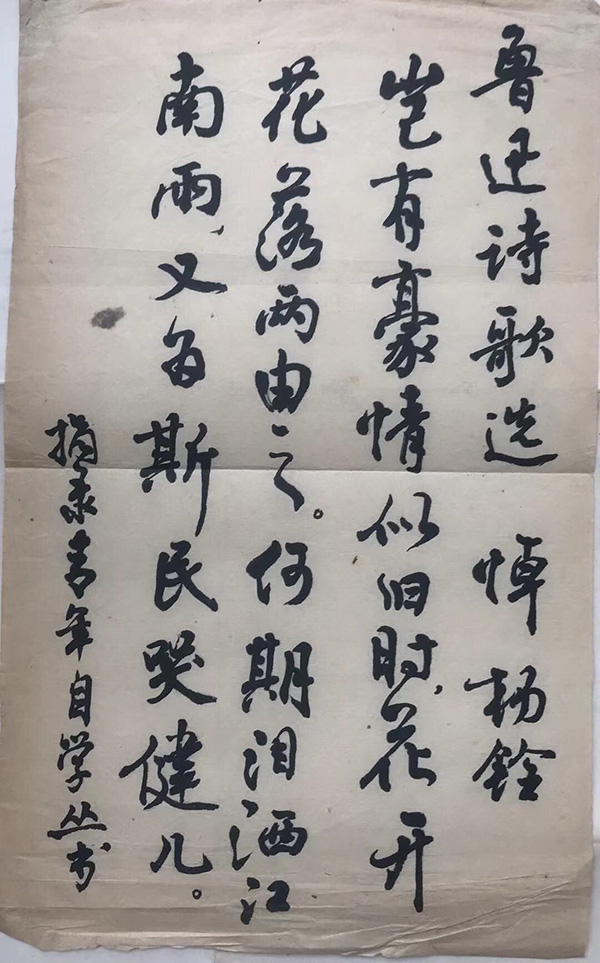 鲁迅诗歌选 悼杨铨
岂有豪情似旧时,花开
花落两由之。何期泪洒江
南雨,又为斯民哭健儿。
摘录青年自学丛书